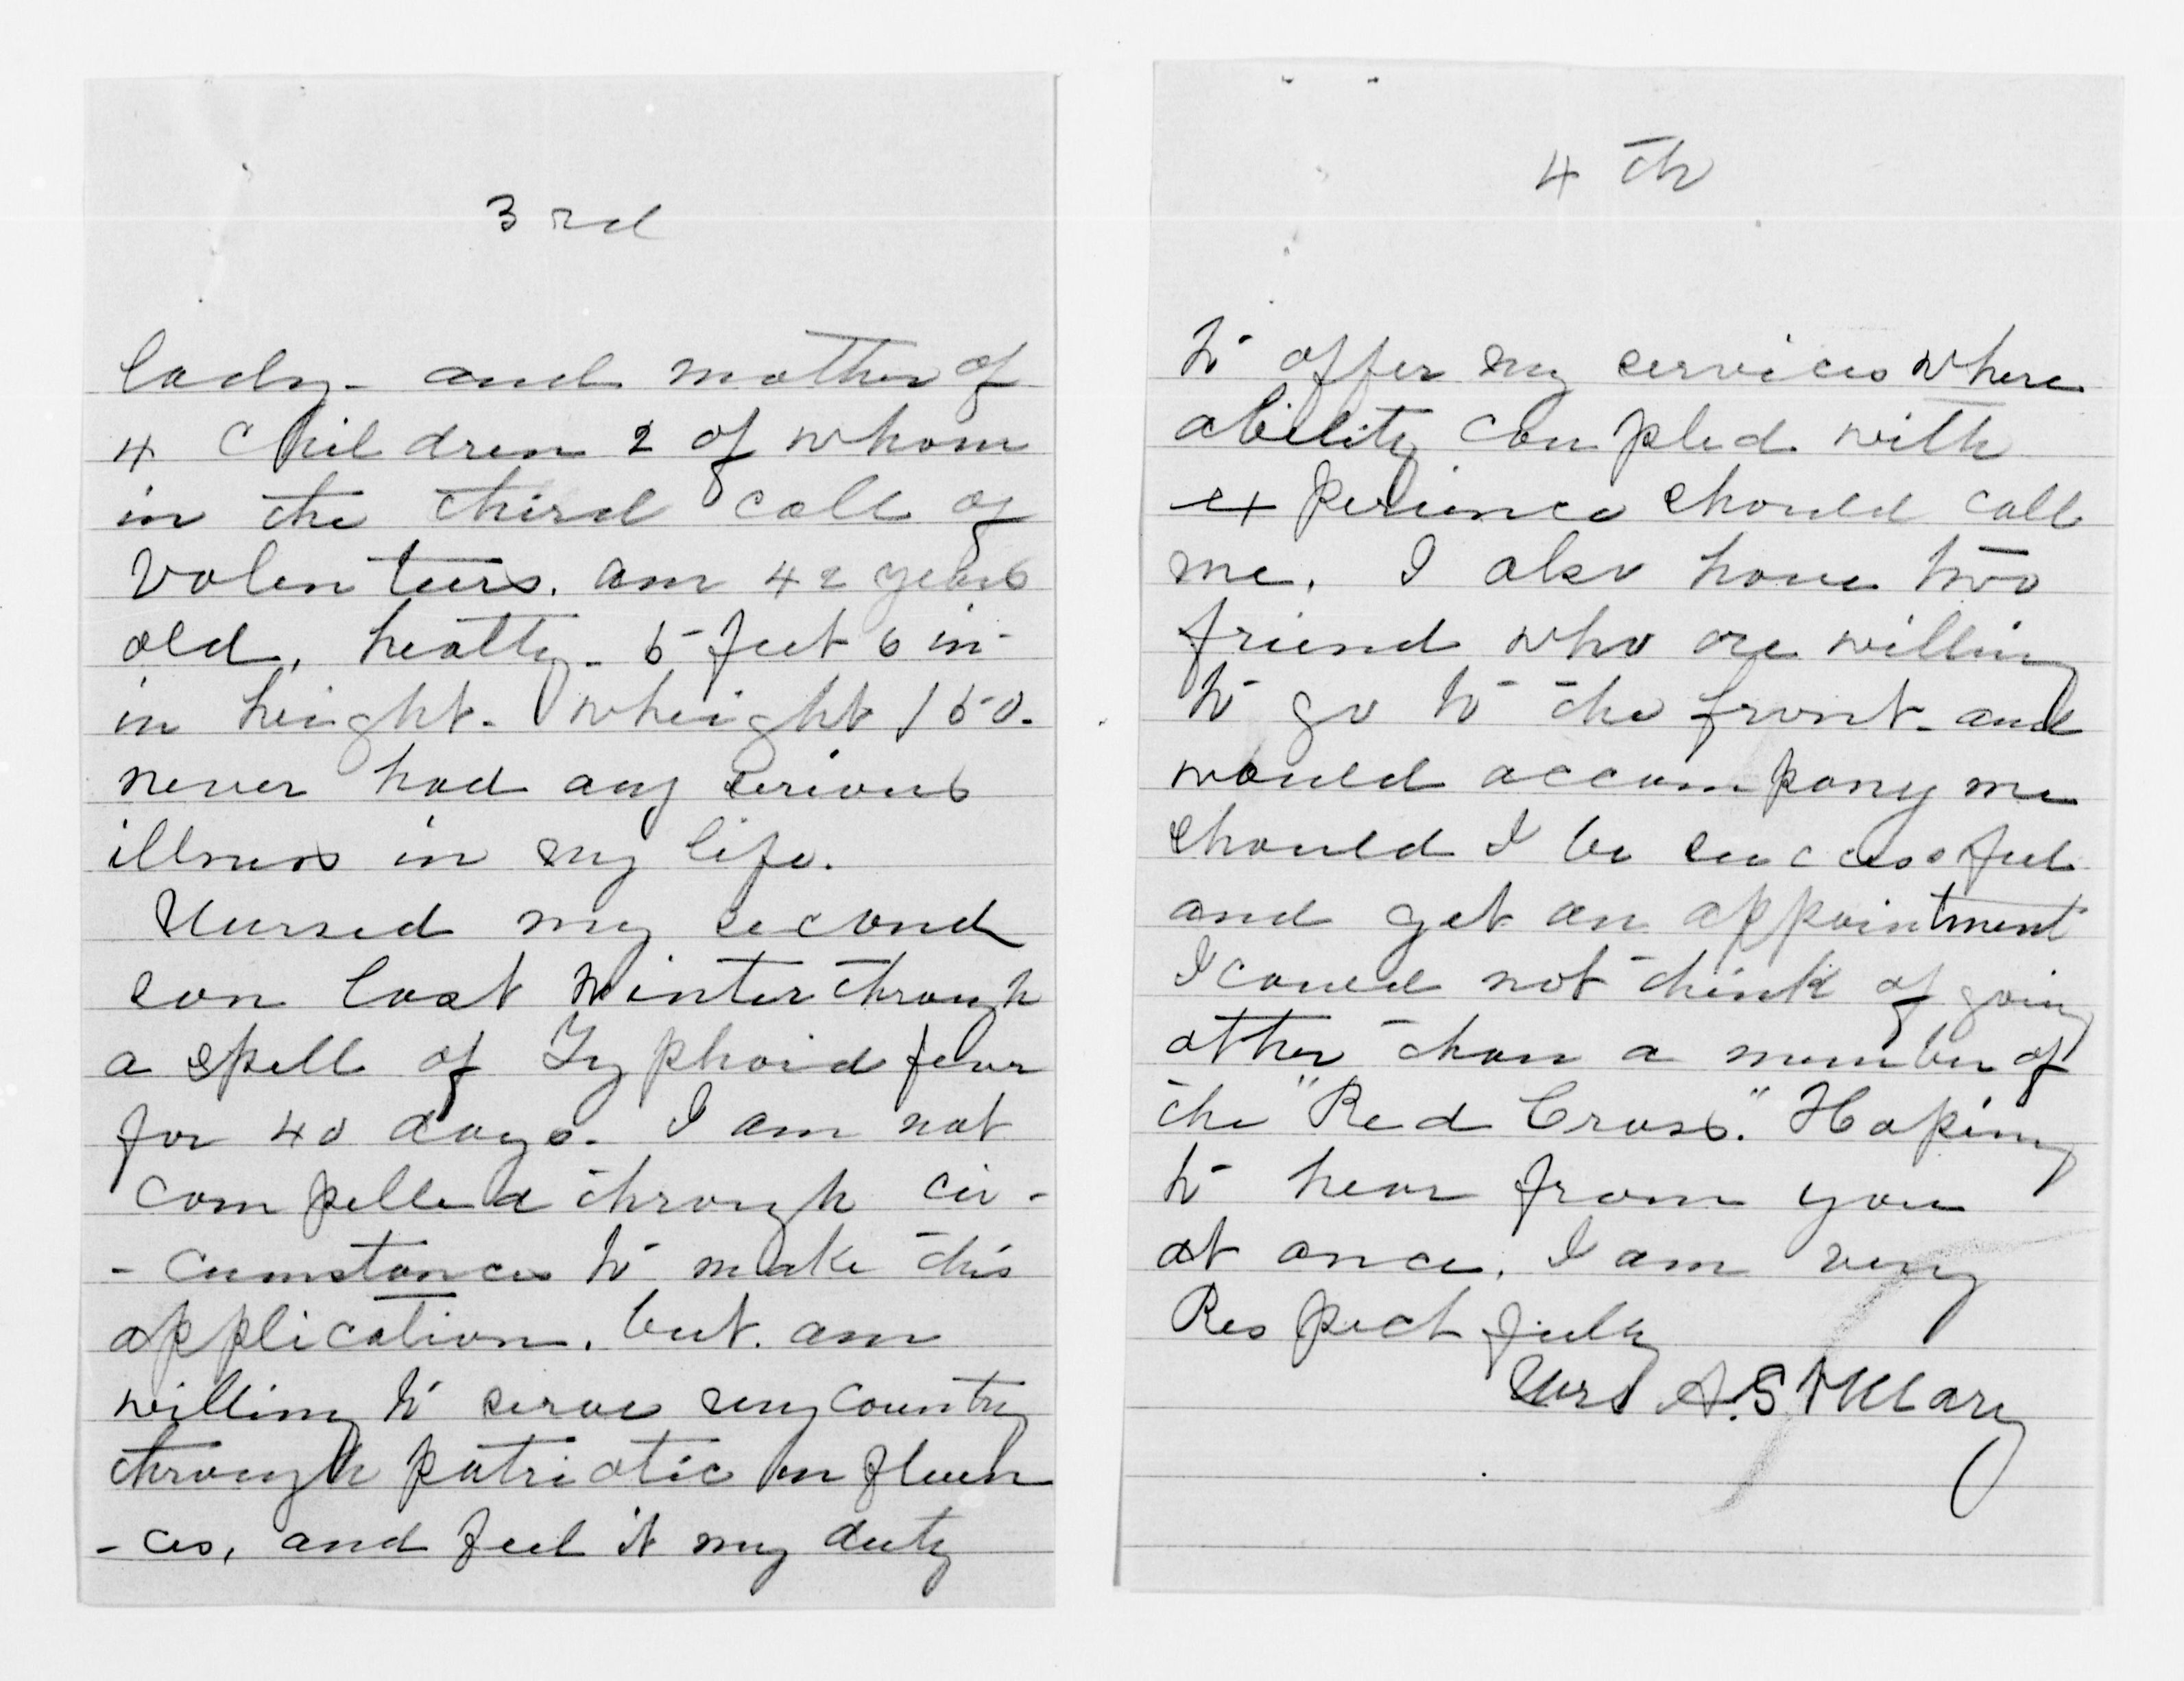 3rd
lady - and mother of
4 Children 2 of whom
in the third call of
Volenteers. am 42 years
old, healty - 5 feet 6 in -
in height. wheight 150.
never had any serious
illness in my life.
Nursed my second
son last Winter through
a spell of Typhoid fever
for 40 days. I am not
compelled through cir -
- cumstances to make this
application, but am
willing to serve my country
through patriotic influen
- ces, and feel it my duty
4th
to offer my services where
ability coupled with
experience should call
me. I also have two
friend who are willing
to go to the front - and
would accompany me
should I be successful
and get an appointment
I could not think of going
other than a member of
the "Red Cross." Hoping
to hear from you
at once, I am very
Respectfully
Mrs A. S.